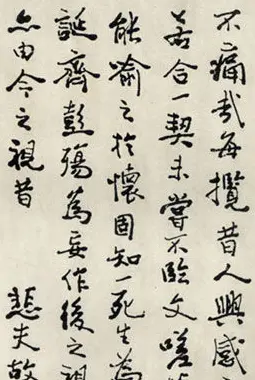 不痛哉每攬昔人興感
若合一契未嘗不臨文嗟
能喻之於懷固知一死生為
誕齊彭殤為妄作後之視
亦由今之視昔 悲夫故